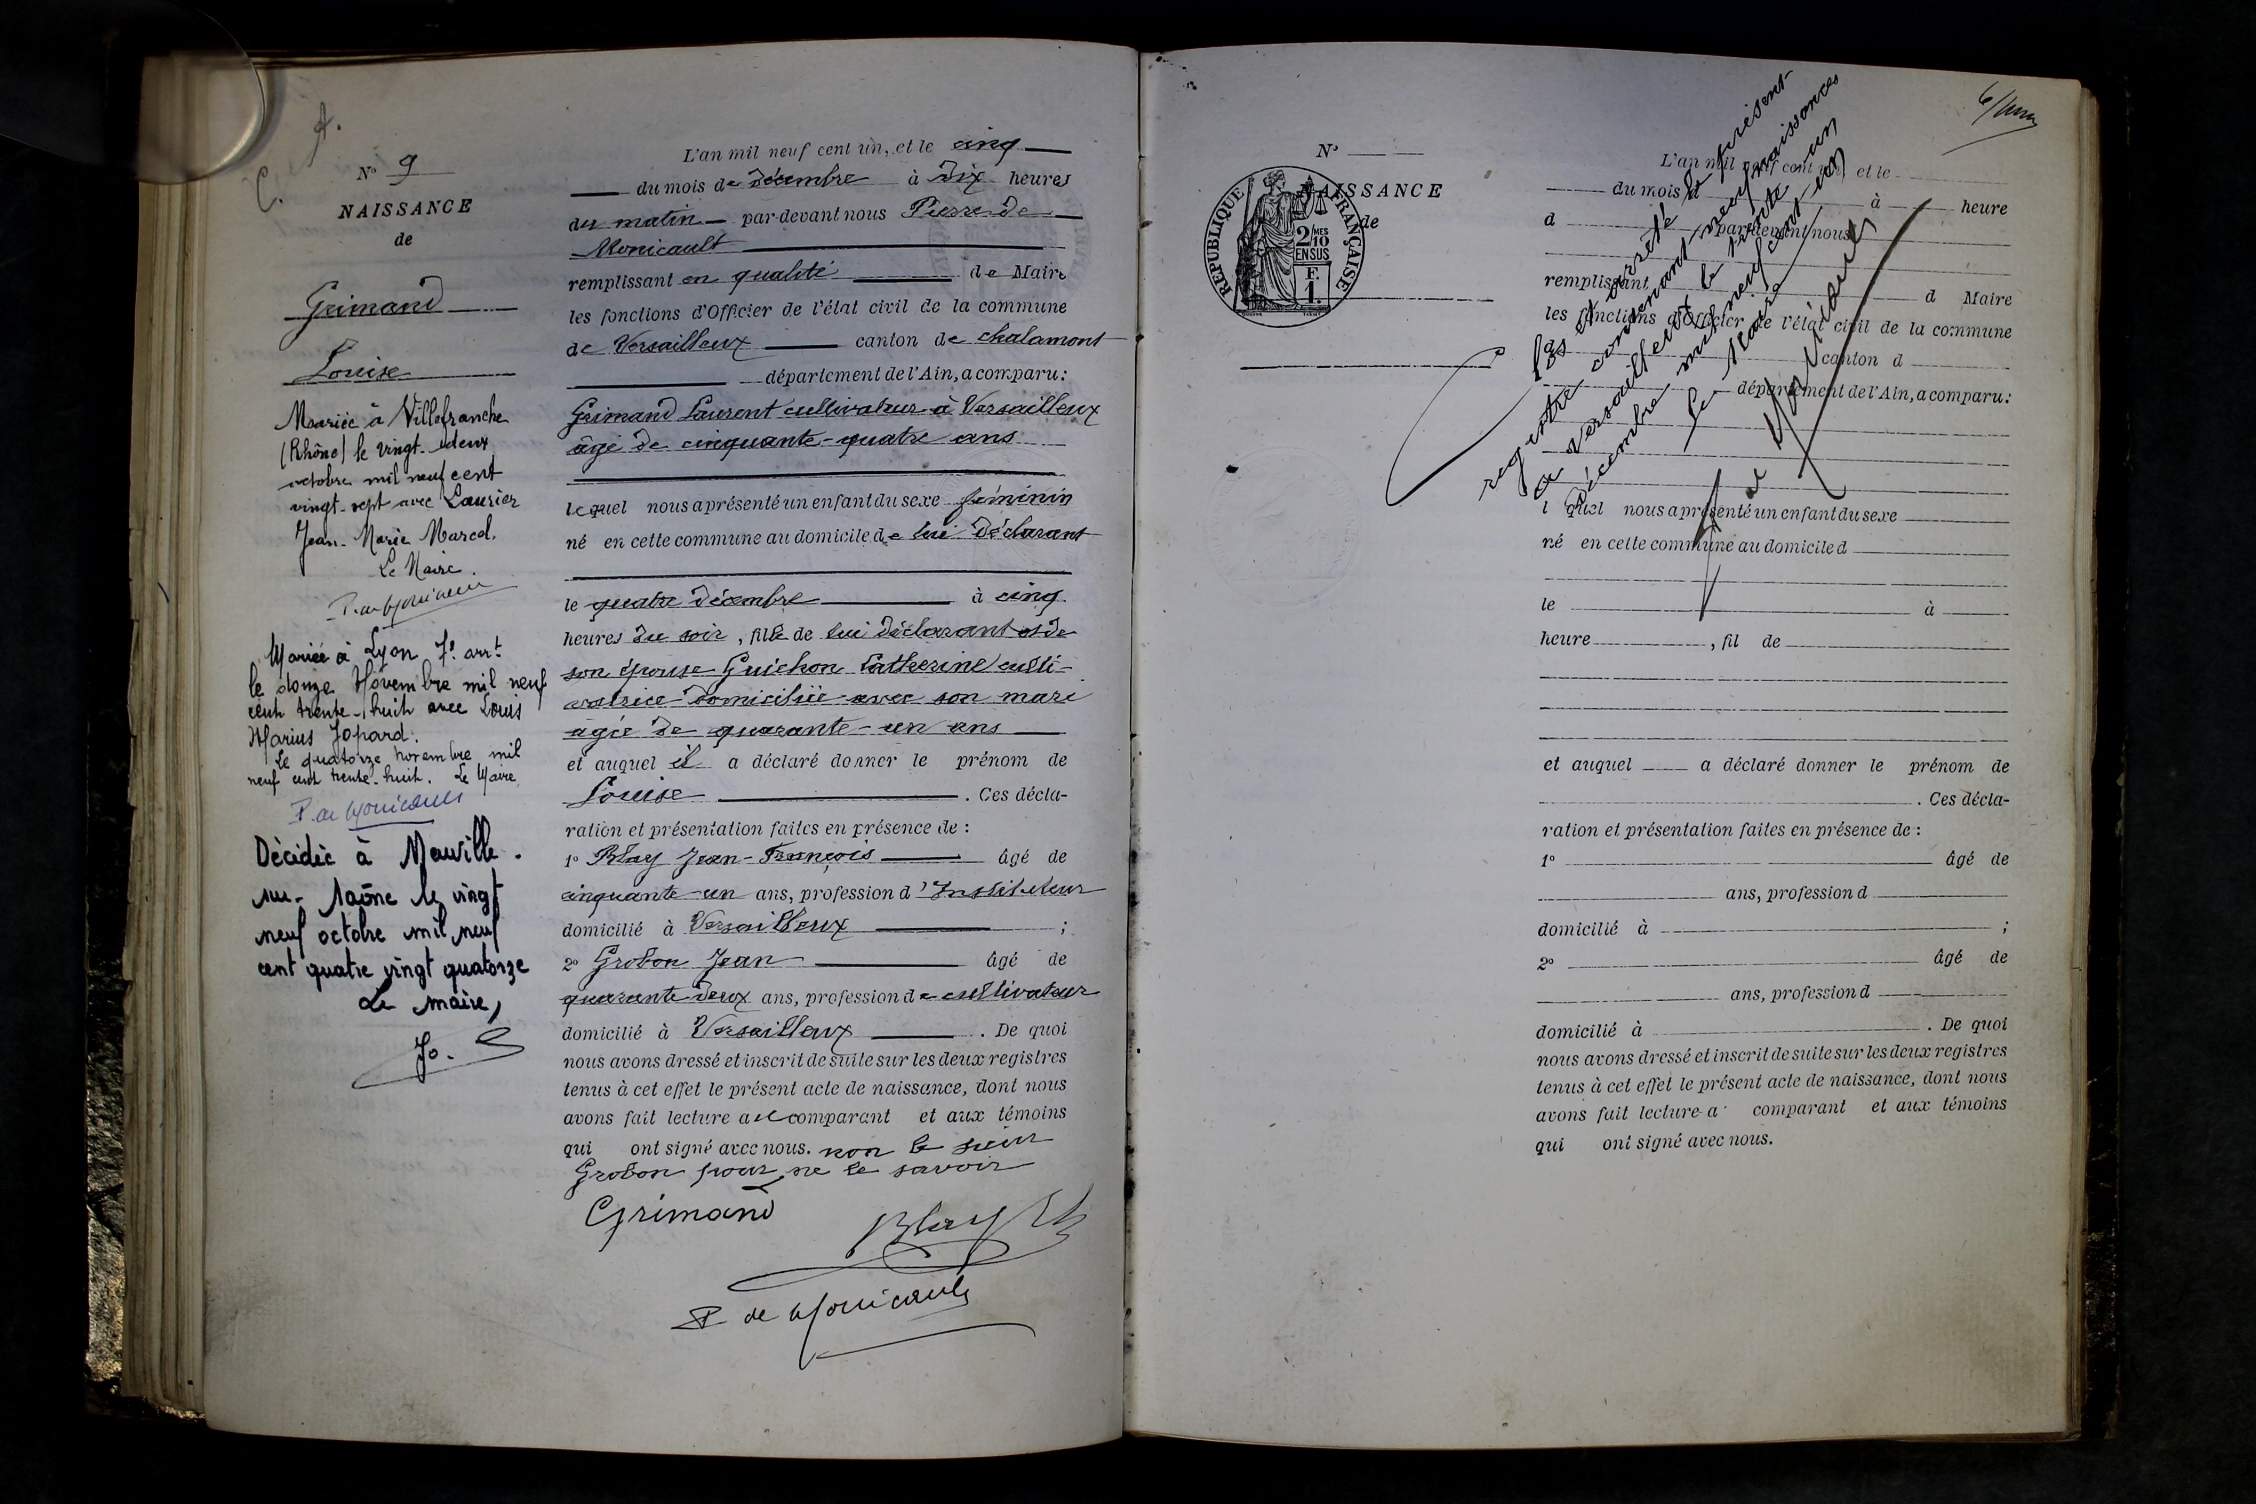 C. A.
N° 9
NAISSANCE
de
Grimand
Louise
Mariée à Villefranche
(Rhône) le vingt-deux
octobre mil neuf cent
vingt-sept avec Laurier
Jean-Marie Marcel.
Le Maire.
P. de Monicault
Mariée à Lyon 7e arrt
le douze Novembre mil neuf
cent trente-huit avec Louis
Marius Jopard.
Le quatorze novembre mil
neuf cent trente-huit. Le Maire,
P. de Monicault
Décédée à
sur-Saône le vingt
neuf octobre mil neuf
cent quatre vingt quatorze
Le maire,
L'an mil neuf cent un, et le cinq
du mois de Décembre à Dix heures
du matin par-devant nous Pierre de
Monicault
remplissant en qualité de Maire
les fonctions d'Officier de l'état civil de la commune
de Versailleux canton de chalamont
département de l'Ain, a comparu:
Grimand Laurent cultivateur à Versailleux
âgé de cinquante-quatre ans
lequel nous a présenté un enfant du sexe féminin
né en cette commune au domicile de lui Déclarant
le quatre Décembre à cinq
heures du soir, fille de lui Déclarant et de
son épouse Guichon Catherine culti-
vatrice domiciliée avec son mari
âgée de quarante-un ans
et auquel il a déclaré donner le prénom de
Louise. Ces décla-
ration et présentation faites en présence de:
1° Blay Jean-François âgé de
cinquante-un ans, profession d'Instituteur
domicilié à Versailleux;
2° Grobon Jean âgé de
quarante deux ans, profession de cultivateur
domicilié à Versailleux. De quoi
nous avons dressé et inscrit de suite sur les deux registres
tenus à cet effet le présent acte de naissance, dont nous
avons fait lecture au comparant et aux témoins
qui ont signé avec nous. non le sieur
Grobon pour ne le savoir
Grimand
Blay
P. de Monicault
N°
NAISSANCE
de
RÉPUBLIQUE FRANÇAISE
2/10 MES
EN SUS
F.
1.
L'an mil neuf cent un, et le
du mois d à heure
d par-devant nous
remplissant d Maire
les fonctions d'Officier de l'état civil de la commune
de canton d
département de l'Ain, a comparu:
l quel nous a présenté un enfant du sexe
né en cette commune au domicile d
le à
heure, fil de
et auquel a déclaré donner le prénom de
. Ces décla-
ration et présentation faites en présence de:
1° âgé de
ans, profession d
domicilié à ;
2° âgé de
ans, profession d
domicilié à . De quoi
nous avons dressé et inscrit de suite sur les deux registres
tenus à cet effet le présent acte de naissance, dont nous
avons fait lecture a comparant et aux témoins
qui ont signé avec nous.
Clos et arrêté le présent
registre contenant neuf naissances
à Versailleux le trente un
Décembre mil neuf cent un
Le Maire
P. de Monicault